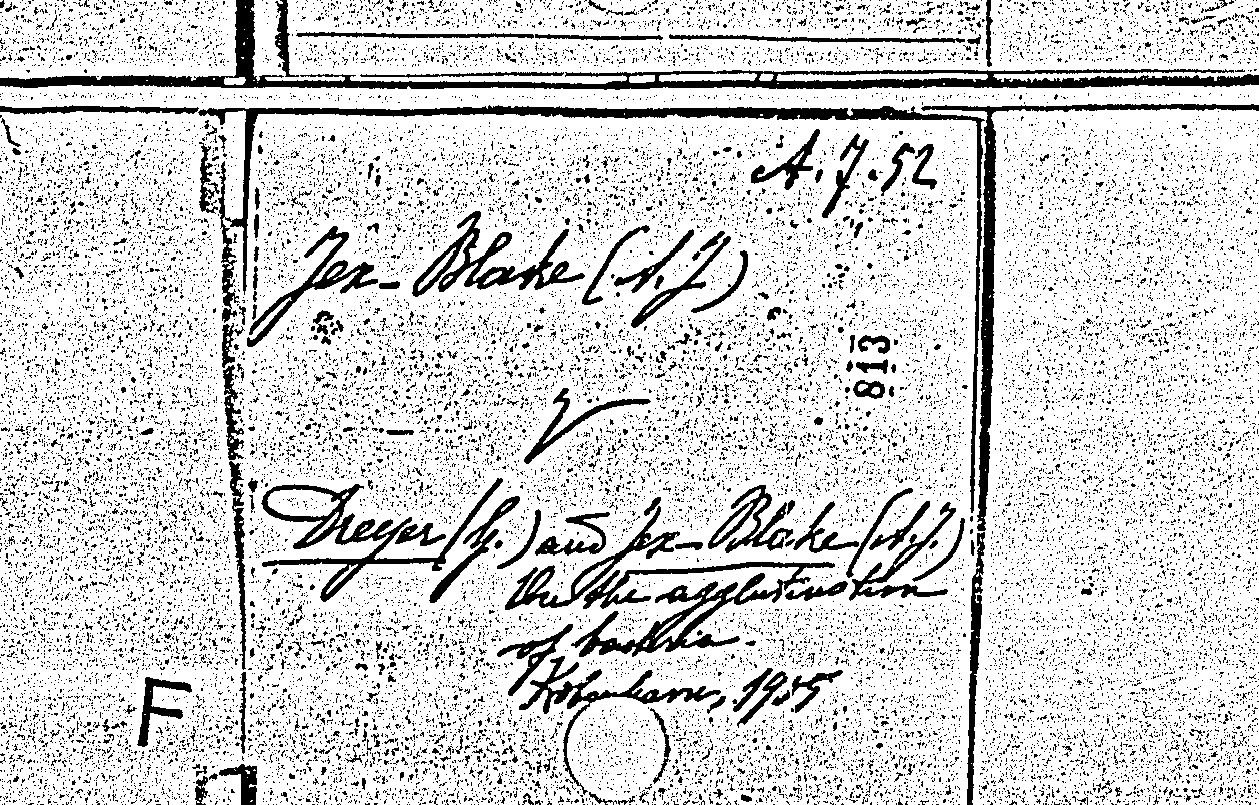 A.J.52
Jex-Blake (A.J)
813
Dreyer (G.) and Jex-Blake (A.J.)
On the agglutination
of bacteria.
København,
F